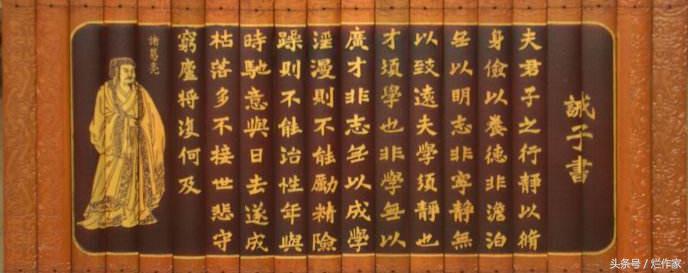 誡子書
夫君子之行靜以脩
身儉以養德非澹泊
無以明志非寧靜無
以致遠夫學須靜也
才須學也非學無以
廣才非志無以成學
淫漫則不能勵精險
躁則不能治性年與
時馳意與日去遂成
枯落多不接世悲守
窮廬將復何及
諸葛亮
头条号 / 烂作家